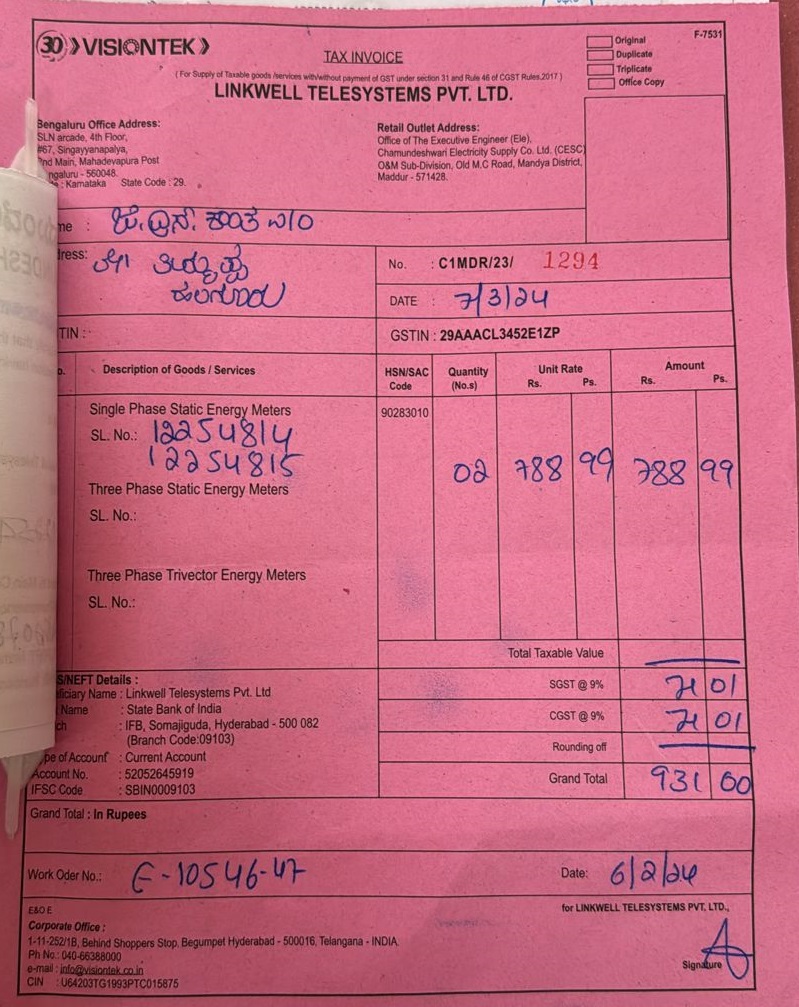 30 VISIONTEK
F-7531
TAX INVOICE
Original
Duplicate
Triplicate
Office Copy
( For Supply of Taxable goods /services with/without payment of GST under section 31 and Rule 46 of CGST Rules,2017 )
LINKWELL TELESYSTEMS PVT. LTD.
Bengaluru Office Address:
SLN arcade, 4th Floor,
#67, Singayyanapalya,
nd Main, Mahadevapura Post
ngaluru - 560048.
: Karnataka State Code : 29.
Retail Outlet Address:
Office of The Executive Engineer (Ele),
Chamundeshwari Electricity Supply Co. Ltd, (CESC)
O&M Sub-Division, Old M.C Road, Mandya District,
Maddur - 571428.
me :
ress:
No. : C1MDR/23/ 1294
DATE : 7/3/24
TIN :
GSTIN : 29AAACL3452E1ZP
o. Description of Goods / Services HSN/SAC Code Quantity (No.s) Unit Rate Rs. Ps. Amount Rs. Ps.
Single Phase Static Energy Meters 90283010
SL. No.: 12254814
12254815
02 788 99 788 99
Three Phase Static Energy Meters
SL. No.:
Three Phase Trivector Energy Meters
SL. No.:
Total Taxable Value
S/NEFT Details :
ficiary Name : Linkwell Telesystems Pvt. Ltd
Name : State Bank of India
ch : IFB, Somajiguda, Hyderabad - 500 082
(Branch Code:09103)
pe of Account : Current Account
Account No. : 52052645919
IFSC Code : SBIN0009103
SGST @ 9% 71 01
CGST @ 9% 71 01
Rounding off
Grand Total 931 00
Grand Total : In Rupees
Work Oder No.: E-10546-47
Date: 6/2/24
E&O E
for LINKWELL TELESYSTEMS PVT. LTD.,
Corporate Office :
1-11-252/1B, Behind Shoppers Stop, Begumpet Hyderabad - 500016, Telangana - INDIA
Ph No.: 040-66388000
e-mail : info@visiontek.co.in
CIN : U64203TG1993PTC015875
Signature